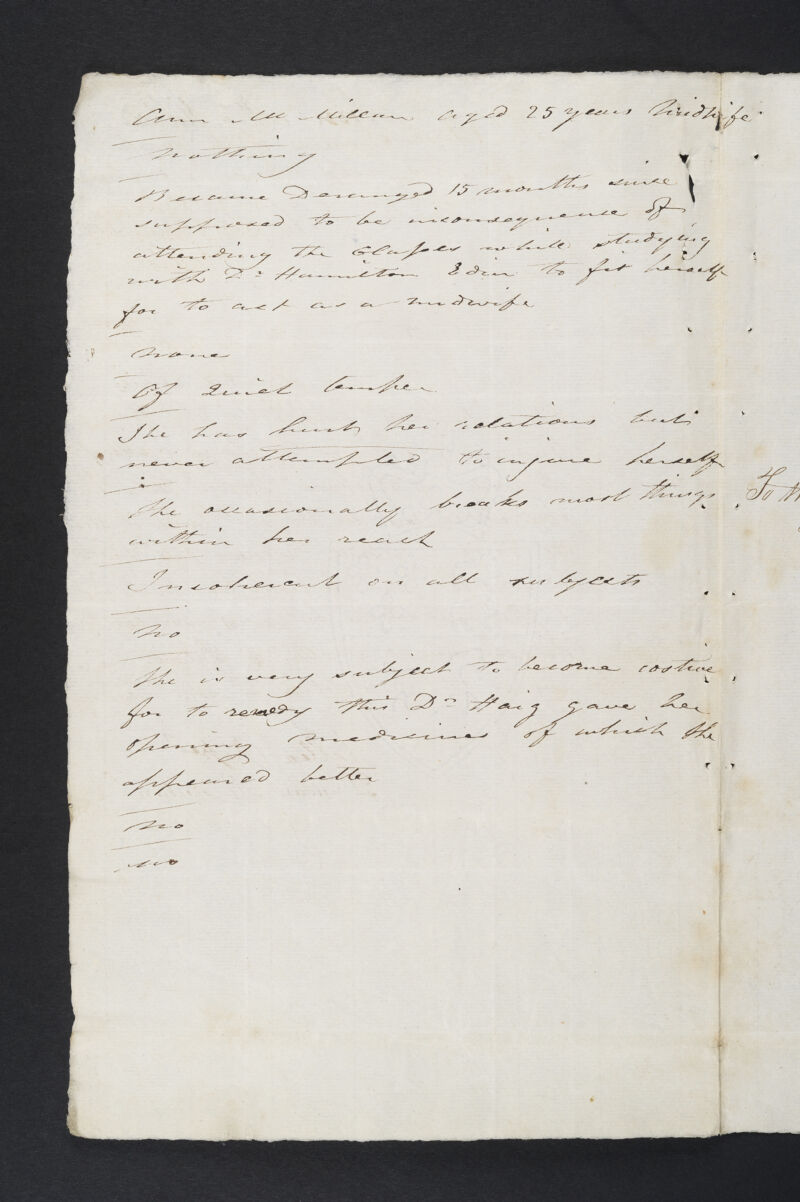 Ann McMillan aged 25 years Midwife
Nothing
Became Deranged 15 months since
supposed to be inconsequense of
attending the Classes while studying
with Dr Hamilton Edin to fit herself
for to act as a midwife
None
Of Quiet temper
She has hurt her relations but
never attempted to injure herself
She occasionally breaks most things
within her reach
Incoherent on all subjects
No
She is very subject to become costive
for to remedy this Dr Haig gave her
opening medicines of which she
appeared better
No
No
To